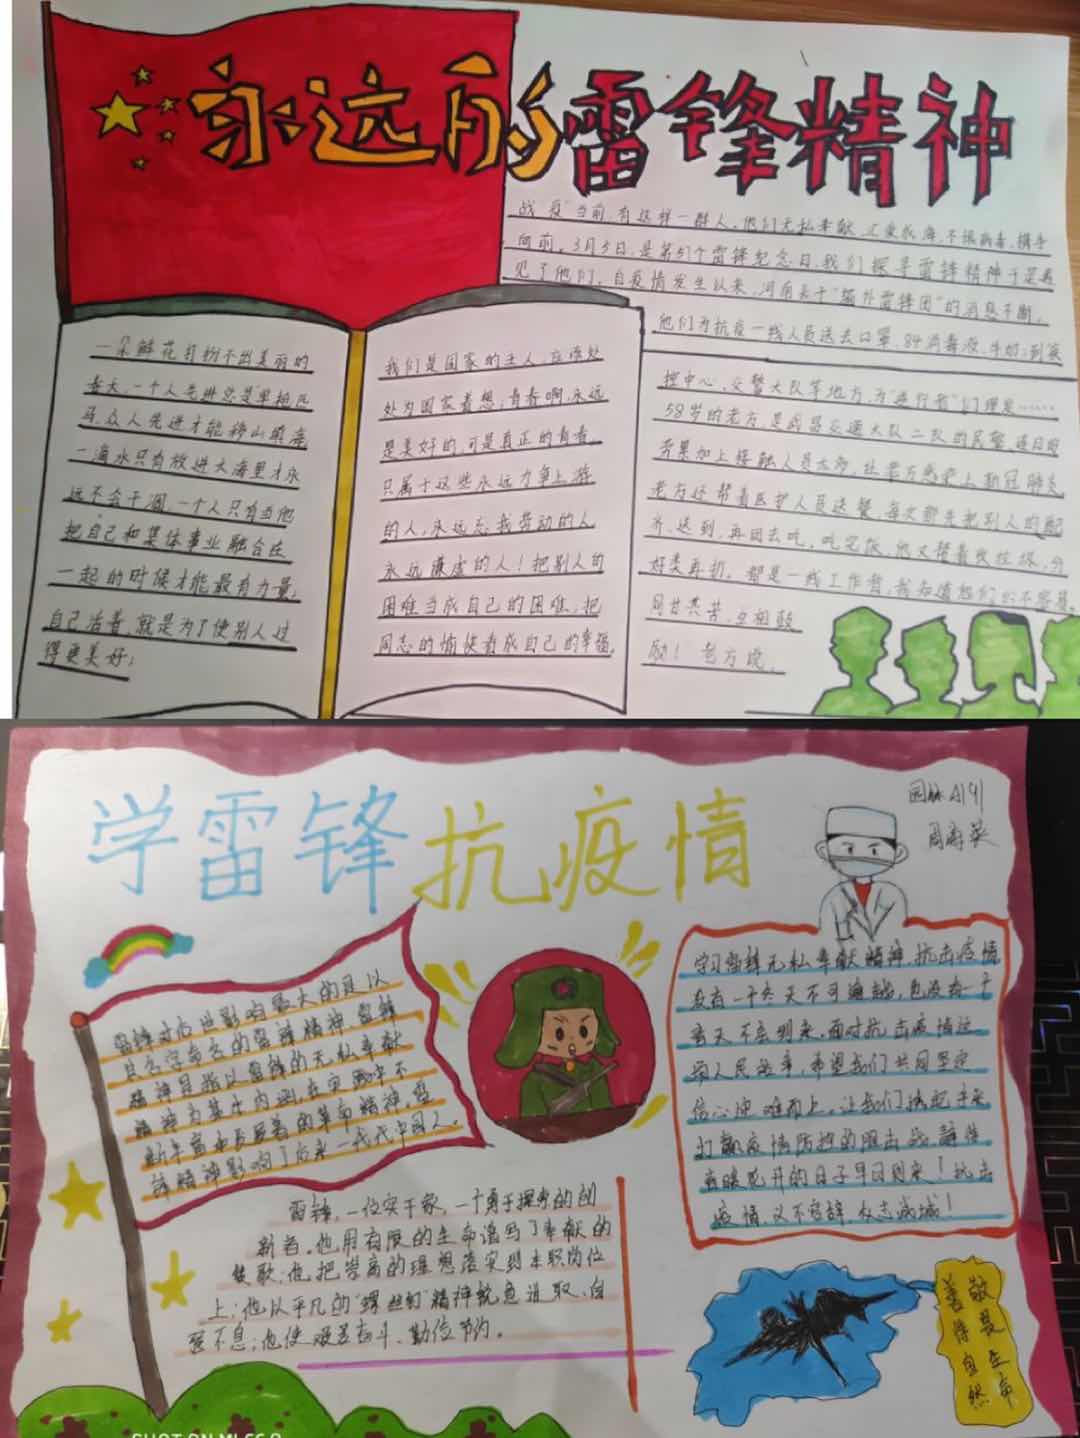 永远的雷锋精神
战"疫"当前,有这样一群人,他们无私奉献,汇聚成海,不惧病毒,携手
向前。3月5日,是第57个雷锋纪念日,我们探寻雷锋精神于是看
见了他们。自疫情发生以来,河南关于"编外雷锋团"的消息不断,
他们为抗疫一线人员送去口罩,84消毒液,牛奶;到疾
控中心,交警大队等地方,为"逆行者"们理发……
58岁的老方,是武昌交通大队二队的民警,连日的
劳累加上接触人员太多,让老方感染上新冠肺炎
老方还帮着医护人员送餐,每次都先把别人的配
齐,送到,再回去吃,吃完饭,他又帮着收垃圾,分
好类再扔。都是一线工作者,我知道他们的不容易,
同甘共苦,互相鼓
励!老方说。
一朵鲜花打扮不出美丽的
春天,一个人先进总是单枪匹
马,众人先进才能移山填海
一滴水只有放进大海里才永
远不会干涸,一个人只有当他
把自己和集体事业融合在
一起的时候才能最有力量,
自己活着,就是为了使别人过
得更美好;
我们是国家的主人,应该处
处为国家着想,青春啊,永远
是美好的,可是真正的青春,
只属于这些永远力争上游
的人,永远忘我劳动的人
永远谦虚的人!把别人的
困难当成自己的困难,把
同志的愉快看成自己的幸福,
学雷锋抗疫情
园林
雷锋对后世影响最大的是以
其名字命名的雷锋精神,雷锋
精神是指以雷锋的无私奉献
精神为基本内涵,在实践中不
断丰富和发展着的革命精神,雷
锋精神影响了后来一代代中国人。
雷锋,一位实干家,一个勇于探索的创
新者。他用有限的生命谱写了奉献的
赞歌;他把崇高的理想落实到本职岗位
上;他以平凡的"螺丝钉"精神锐意进取、自
强不息;他使艰苦奋斗、勤俭节约。
学习雷锋无私奉献精神,抗击疫情
没有一个冬天不可逾越,也没有一个
春天不会到来。面对抗击疫情这
项人民战争,希望我们共同坚定
信心迎难而上,让我们携起手来
打赢疫情防控的阻击战,静待
春暖花开的日子早日到来!抗击
疫情,义不容辞,众志成城!
敬畏生命
善待自然
SHOT ON MI CC 9